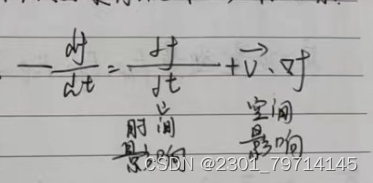 — df/dt = ∂f/∂t + v⃗·∇f
时间 空间
影响 影响
CSDN @2301_79714145